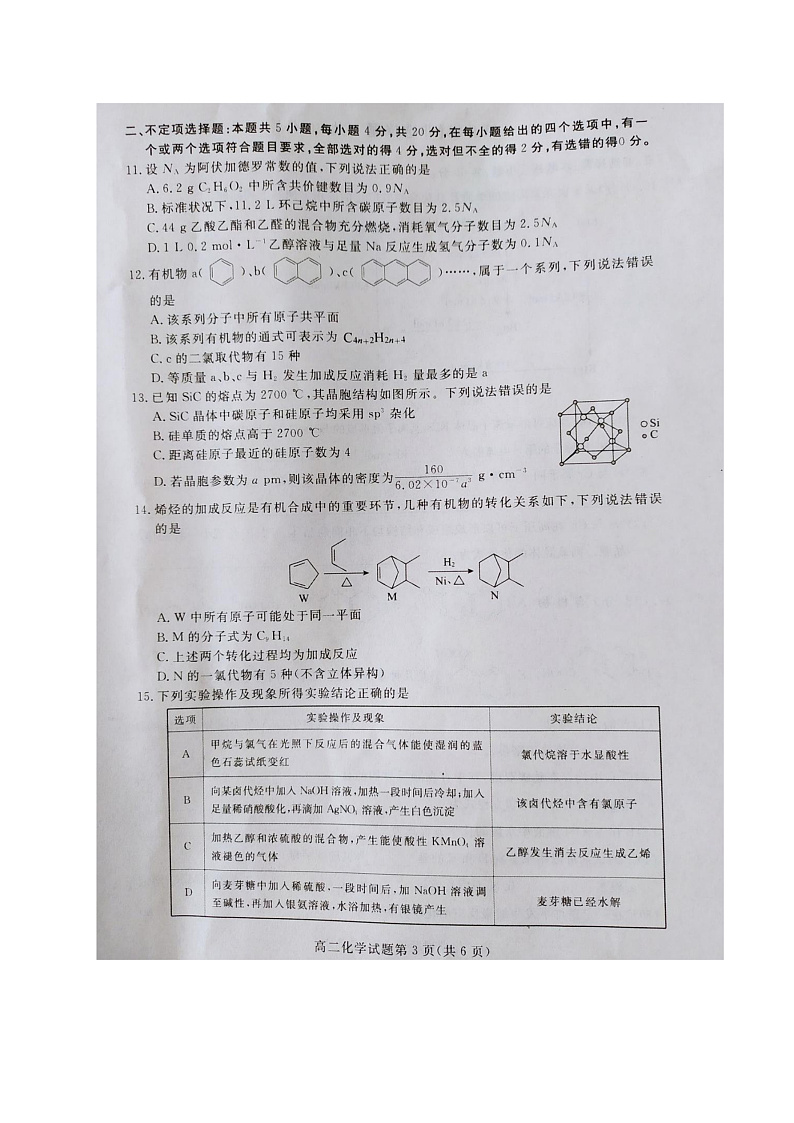 二、不定项选择题:本题共 5 小题,每小题 4 分,共 20 分,在每小题给出的四个选项中,有一
个或两个选项符合题目要求,全部选对的得 4 分,选对但不全的得 2 分,有选错的得0 分。
11.设 N_A 为阿伏加德罗常数的值,下列说法正确的是
A.6.2 g C₂H₆O₂ 中所含共价键数目为 0.9N_A
B.标准状况下,11.2 L 环己烷中所含碳原子数目为 2.5N_A
C.44 g乙酸乙酯和乙醛的混合物充分燃烧,消耗氧气分子数目为 2.5N_A
D.1 L 0.2 mol·L⁻¹乙醇溶液与足量 Na 反应生成氢气分子数为 0.1N_A
12.有机物 a( )、b( )、c( )……,属于一个系列,下列说法错误
的是
A.该系列分子中所有原子共平面
B.该系列有机物的通式可表示为 C₄ₙ₊₂H₂ₙ₊₄
C.c的二氯取代物有 15 种
D.等质量 a、b、c 与 H₂ 发生加成反应消耗 H₂ 量最多的是 a
13.已知 SiC 的熔点为 2700 ℃,其晶胞结构如图所示。下列说法错误的是
A.SiC 晶体中碳原子和硅原子均采用 sp³ 杂化
B.硅单质的熔点高于 2700 ℃
C.距离硅原子最近的硅原子数为 4
D.若晶胞参数为 a pm,则该晶体的密度为 160/(6.02×10⁻⁷a³) g·cm⁻³
○Si
∘C
14.烯烃的加成反应是有机合成中的重要环节,几种有机物的转化关系如下,下列说法错误
的是
△
H₂
Ni、△
W
M
N
A.W 中所有原子可能处于同一平面
B.M 的分子式为 C₉H₁₄
C.上述两个转化过程均为加成反应
D.N 的一氯代物有 5 种(不含立体异构)
15.下列实验操作及现象所得实验结论正确的是
选项 实验操作及现象 实验结论
A 甲烷与氯气在光照下反应后的混合气体能使湿润的蓝
色石蕊试纸变红 氯代烷溶于水显酸性
B 向某卤代烃中加入 NaOH 溶液,加热一段时间后冷却;加入
足量稀硝酸酸化,再滴加 AgNO₃ 溶液,产生白色沉淀 该卤代烃中含有氯原子
C 加热乙醇和浓硫酸的混合物,产生能使酸性 KMnO₄ 溶
液褪色的气体 乙醇发生消去反应生成乙烯
D 向麦芽糖中加入稀硫酸,一段时间后,加 NaOH 溶液调
至碱性,再加入银氨溶液,水浴加热,有银镜产生 麦芽糖已经水解
高二化学试题第 3 页(共 6 页)